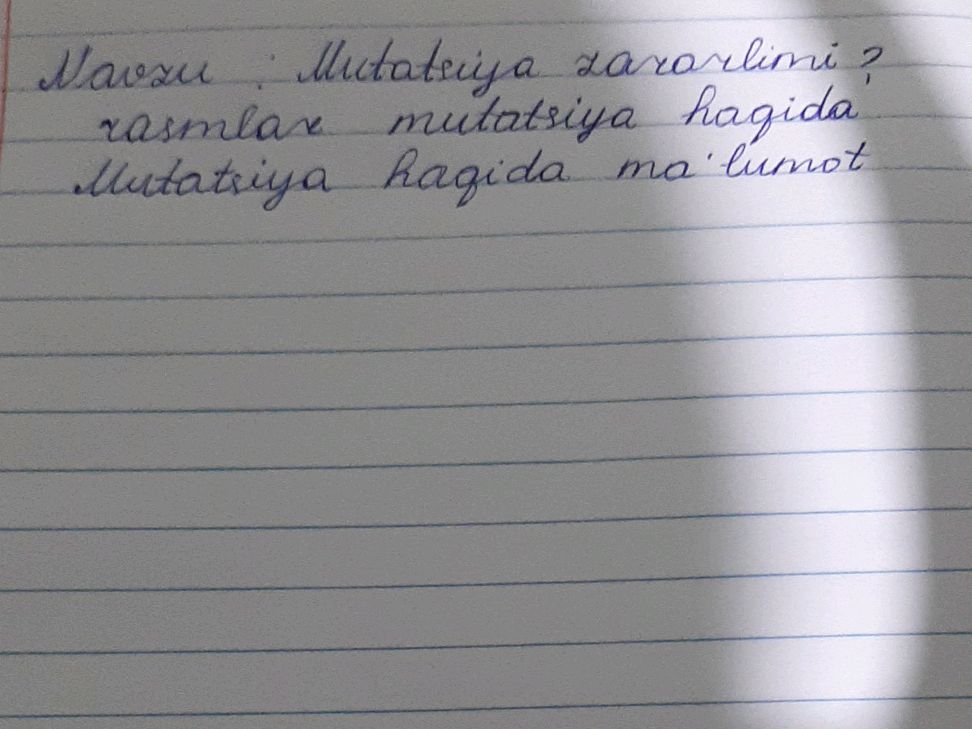 Mavzu : Mutatsiya zararlimi?
rasmlar mutatsiya haqida
Mutatsiya haqida ma'lumot